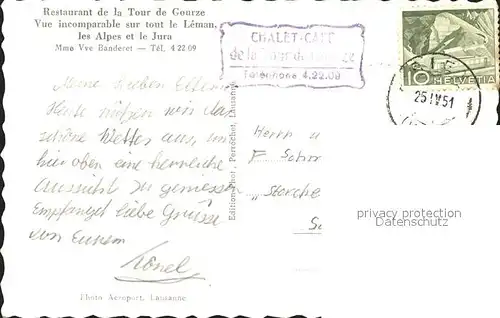 Restaurant de la Tour de Gourze
Vue incomparable sur tout le Léman,
les Alpes et le Jura
Mme Vve Banderet — Tél. 4 22 09
CHALET-CAFÉ
de la Tour de
Téléphone 4.22.09
10 HELVETIA
25 IV 51
Meine lieben Eltern
Heute nützen wir das
schöne Wetter aus, um
hier oben eine herrliche
Aussicht zu geniessen
Empfanget liebe Grüsse
von Eurem
Edition Phot. Perrochet, Lausanne
Herrn u
F. Schm
„Storche
privacy protection
Datenschutz
Photo Aéroport, Lausanne